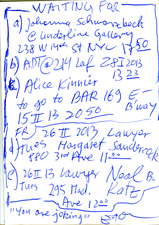 WAITING FOR
a) Johanna Schwarzbeck
@ underline Gallery
238 W 14 St NYC 17 50
b) ADT @ 219 Laf 2 PI 2013
13 23
Alice Kinnier
to go to BAR 169 E-
B'way
15 II 13 20 50
FR) 26 II 2013 Lawyer
d) Tues Margaret
580 3rd Ave 11 00
e) 26 II 13 Lawyer Neal B.
Tues 295 Mad. Katz
Ave 12 00
"You are joking"